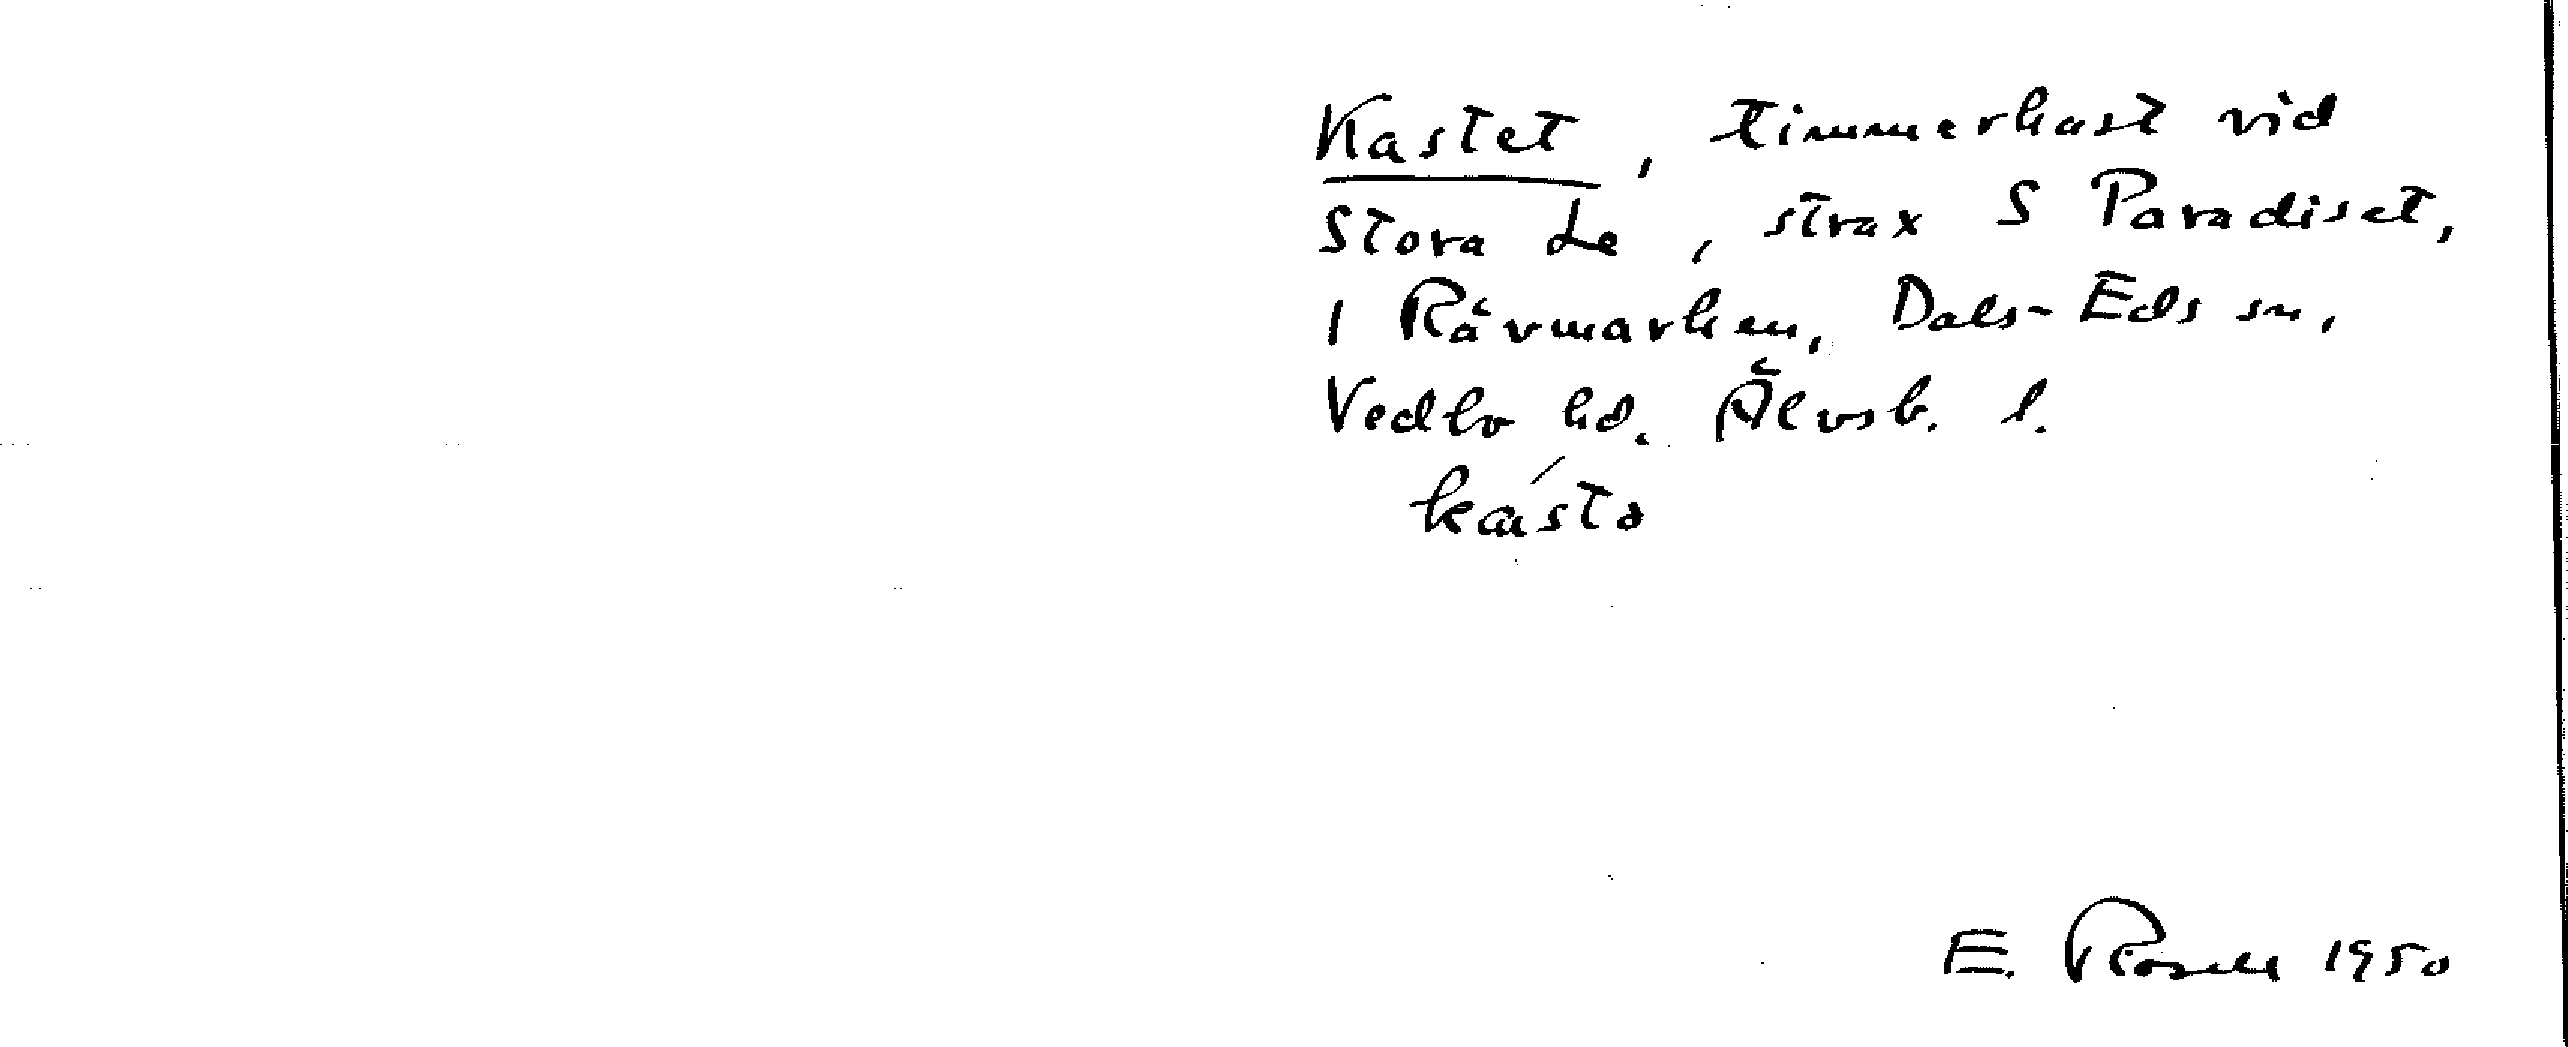 Kastet, timmerkast vid
Stora Le, strax S Paradiset,
1 Rävmarken, Dals-Eds sn,
Vedbo hd. Älvsb. l.
kásta
E. Rosell 1950